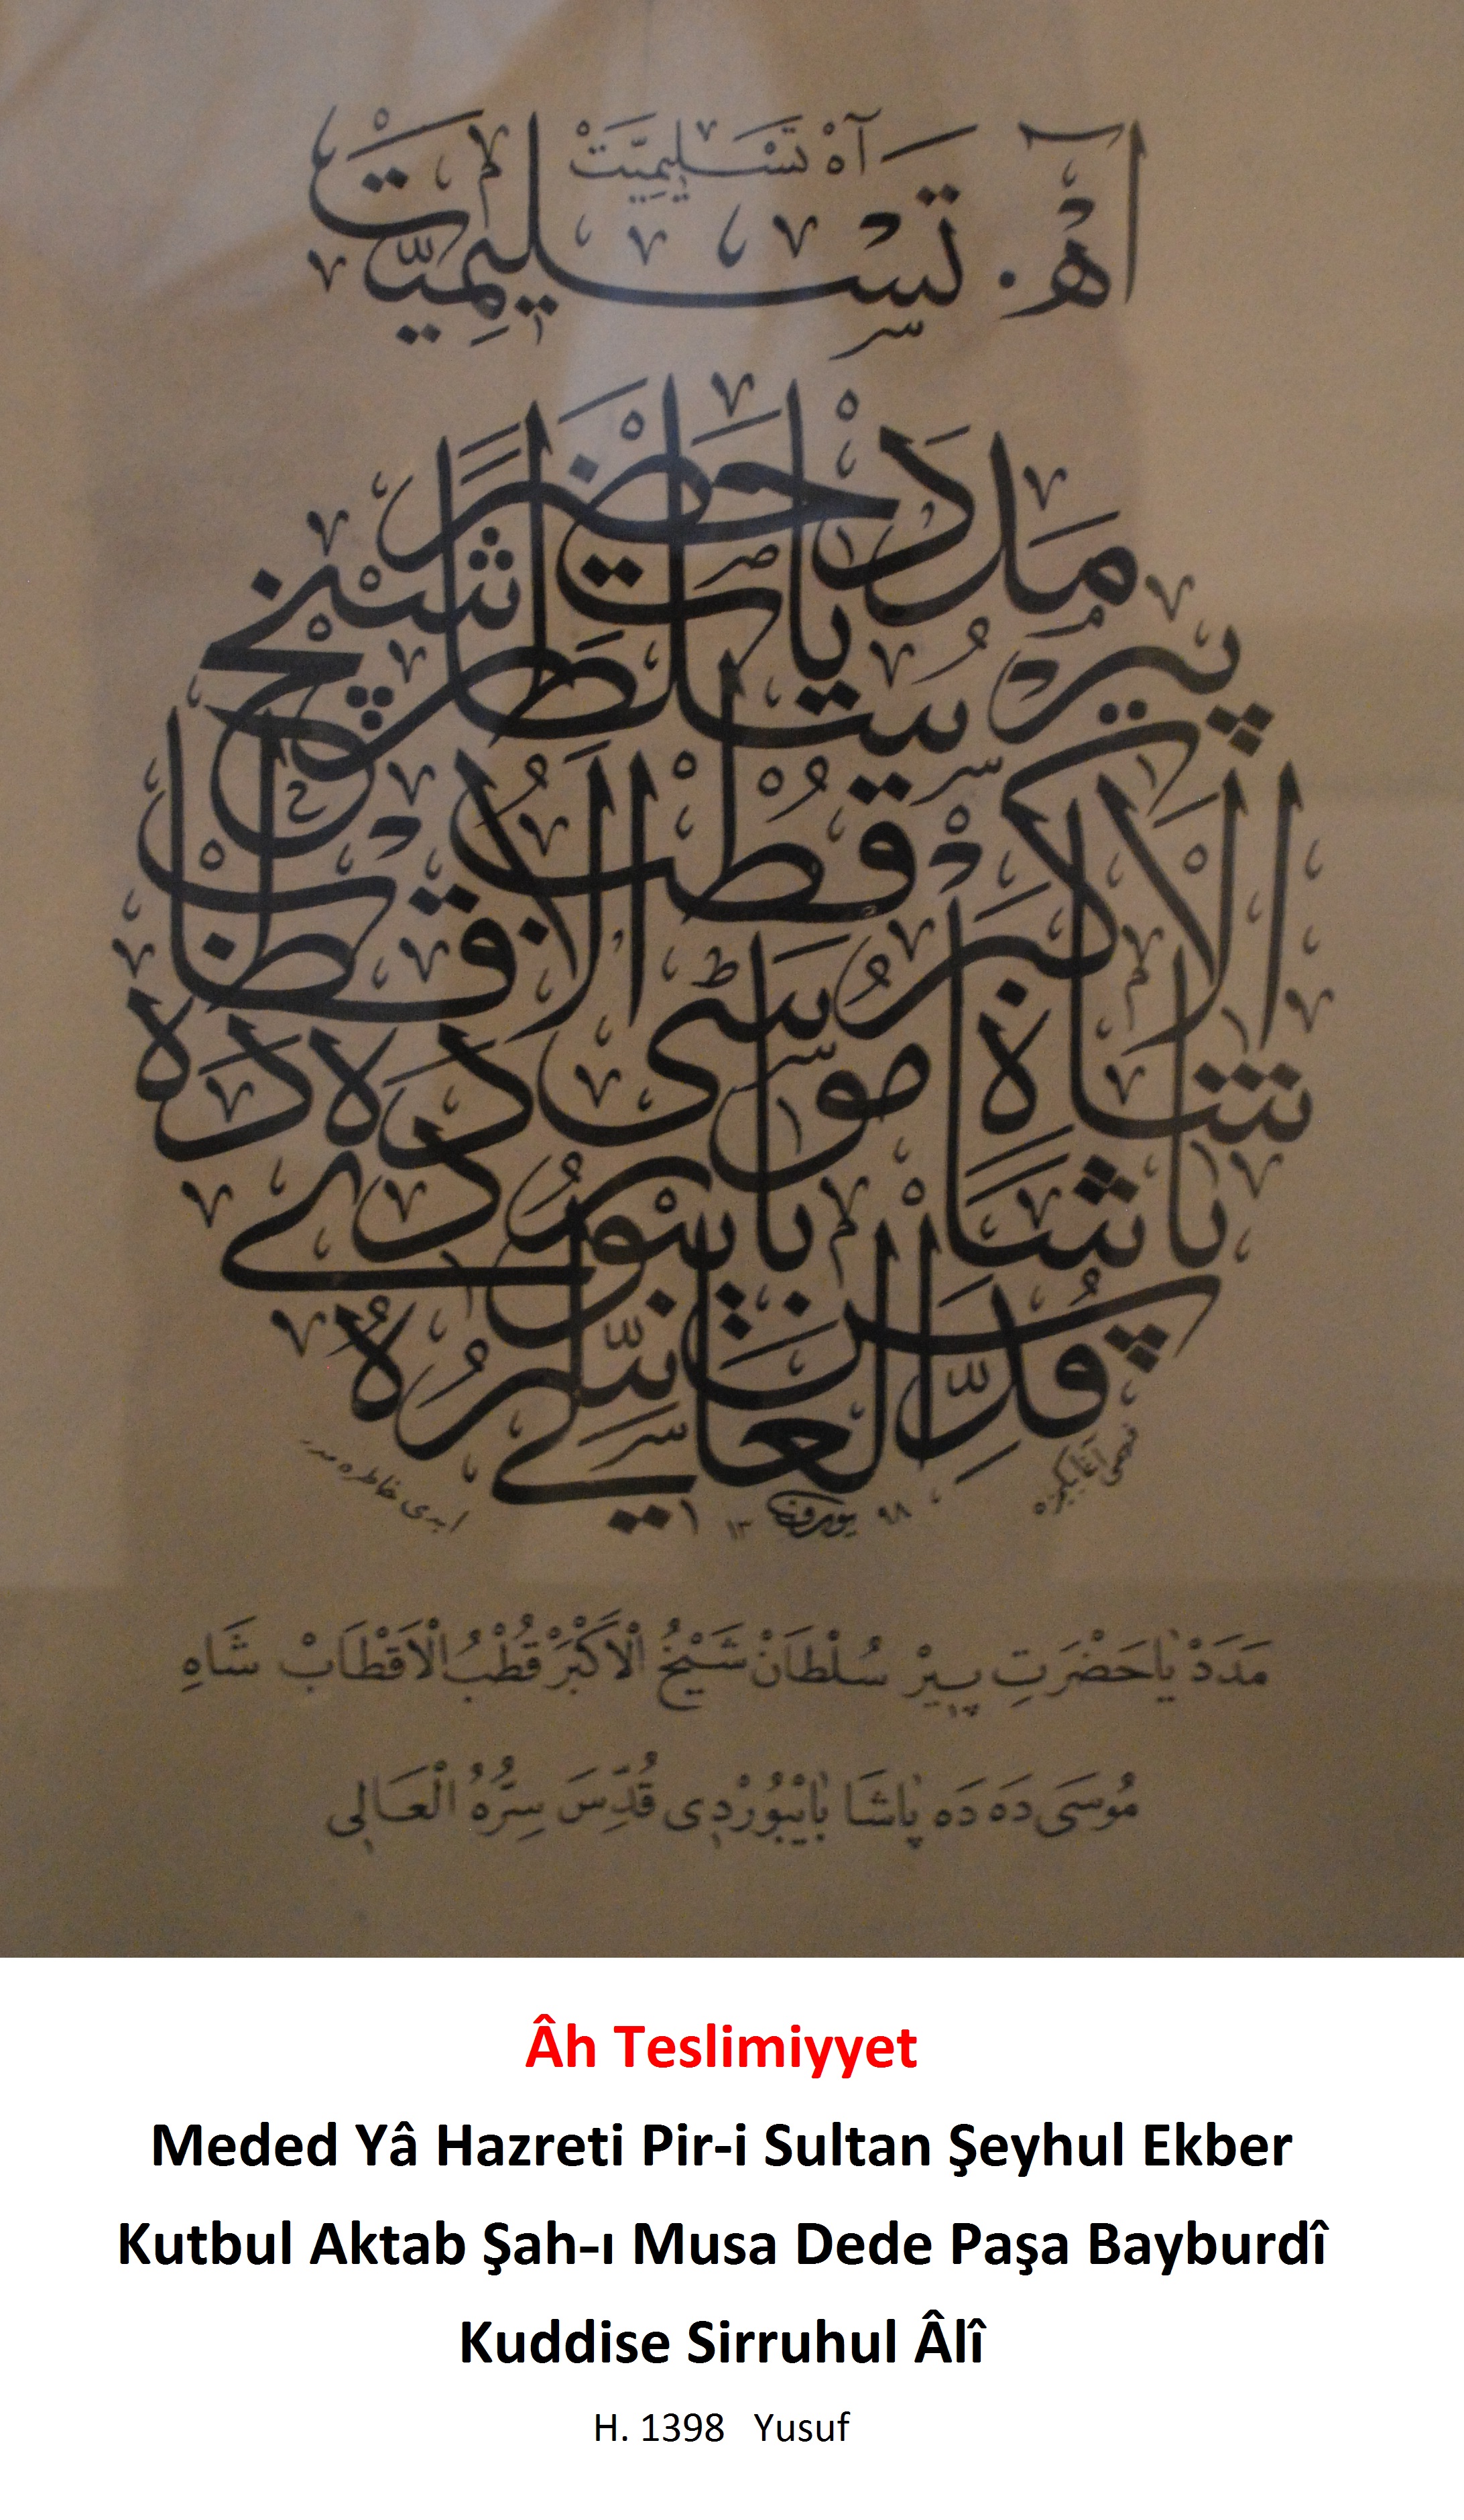 آه تَسْلِيمِيَّتْ
آه تَسْلِيمِيَّتْ
مَدَدْ يَا حَضْرَتِ پِيرْ سُلْطَانْ شَيْخُ الْاَكْبَرْ قُطْبُ الْاَقْطَابْ شَاهِ
مُوسَى دَه دَه پَاشَا بَايْبُورْدِى قُدِّسَ سِرُّهُ الْعَالِى
١٣ يوسف ٩٨
مَدَدْ يَا حَضْرَتِ پِيرْ سُلْطَانْ شَيْخُ الْاَكْبَرْ قُطْبُ الْاَقْطَابْ شَاهِ
مُوسَى دَه دَه پَاشَا بَايْبُورْدِى قُدِّسَ سِرُّهُ الْعَالِى
Âh Teslimiyyet
Meded Yâ Hazreti Pir-i Sultan Şeyhul Ekber
Kutbul Aktab Şah-ı Musa Dede Paşa Bayburdî
Kuddise Sirruhul Âlî
H. 1398 Yusuf